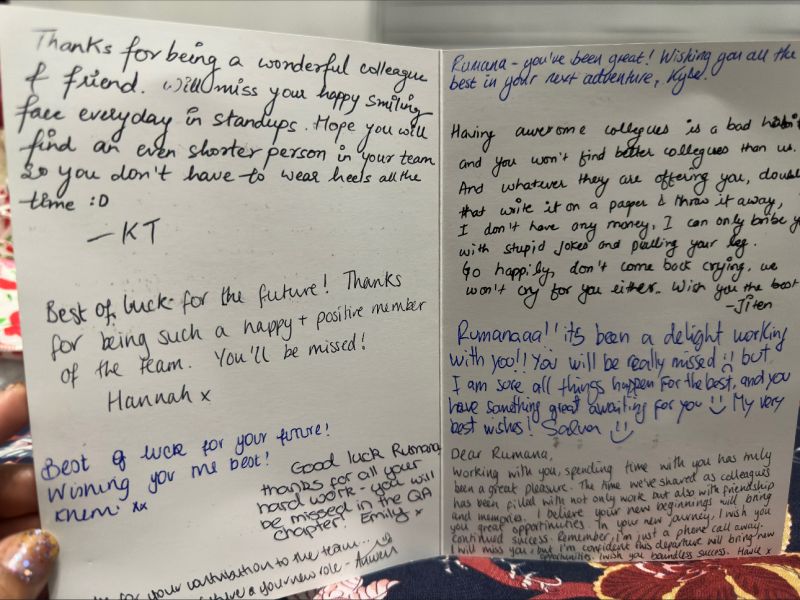 Thanks for being a wonderful colleague
& friend. Will miss your happy smiling
face everyday in standups. Hope you will
find an even shorter person in your team
so you don't have to wear heels all the
time :D
— KT
Best of luck for the future! Thanks
for being such a happy + positive member
of the team. You'll be missed!
Hannah x
Best of luck for your future!
Wishing you the best!
xx
Good luck Rumana,
thanks for all your
hard work - you will
be missed in the QA
chapter! Emily x
for your contribution to the team...
a your new role -
Rumana - you've been great! Wishing you all the
best in your next adventure, Kyle.
Having awesome collegues is a bad
and you won't find better collegues than us.
And whatever they are offering you,
that write it on a paper & throw it away,
I don't have any money, I can only bribe
with stupid jokes and pulling your leg.
Go happily, don't come back crying. we
won't cry for you either.. Wish you the best
- Jiten
Rumanaaa!! it's been a delight working
with you!! You will be really missed :( but
I am sure all things happen for the best, and you
have something great awaiting for you :) My very
best wishes! :)
Dear Rumana,
Working with you, spending time with you has truly
been a great pleasure. The time we've shared as colleagues
has been filled with not only work but also with friendship
and memories. I believe your new beginnings will bring
you great opportunities. In your new journey, I wish you
continued success. Remember, I'm just a phone call away.
I will miss you, but I'm confident this departure will bring new
opportunities. I wish you boundless success. x